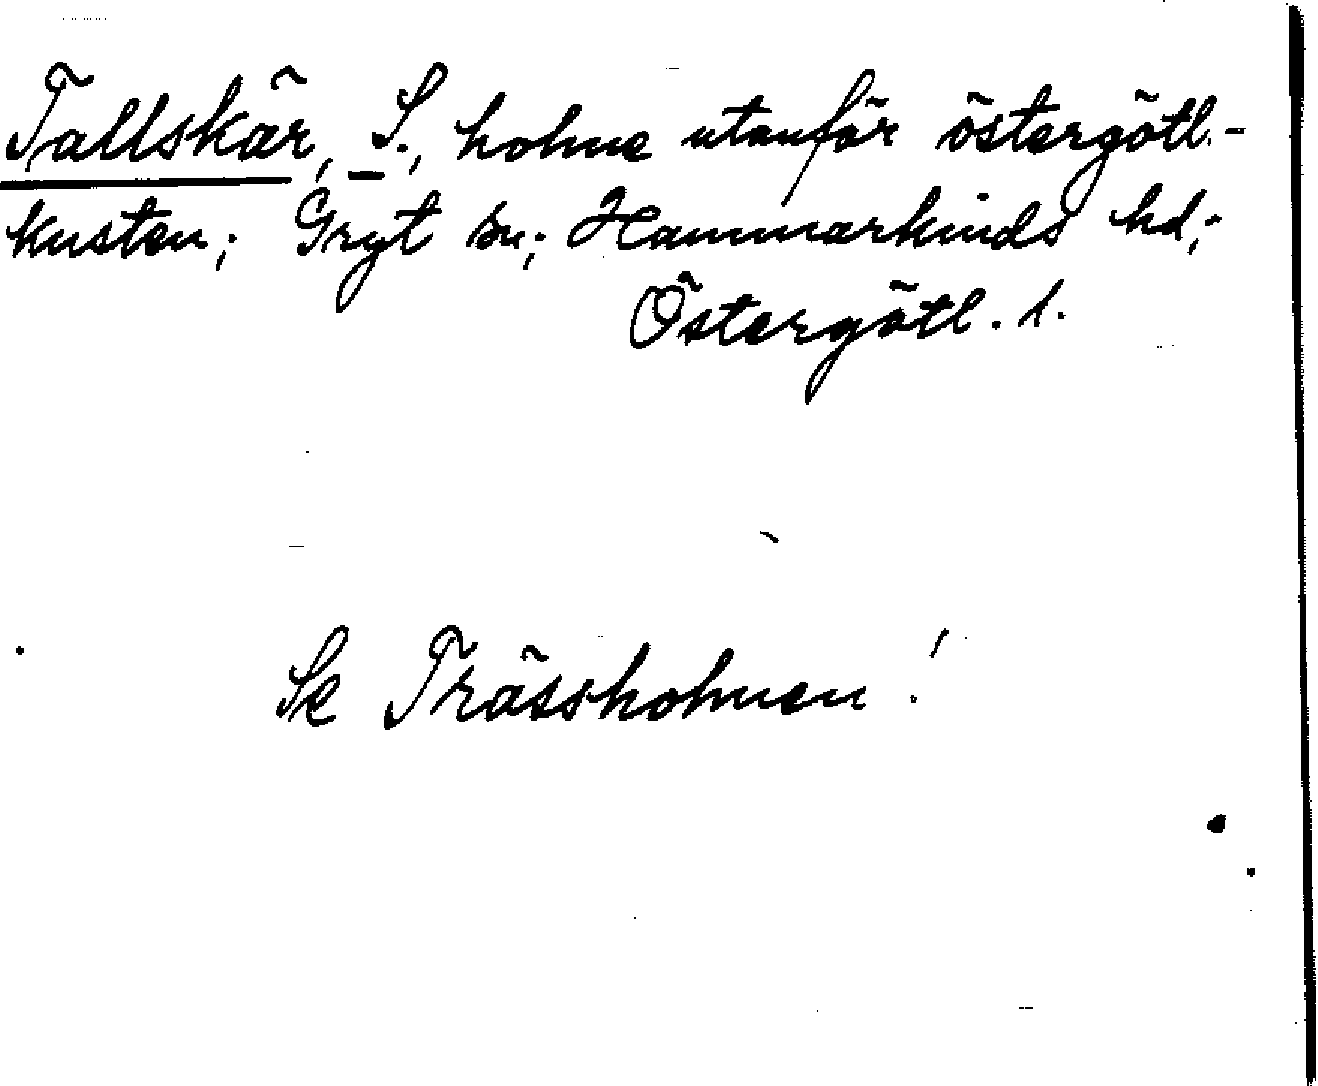 Tallskär, S., holme utanför östergötl.-
kusten; Gryt sn; Hammarkinds hd;
Östergötl. l.
Se Trässholmen!